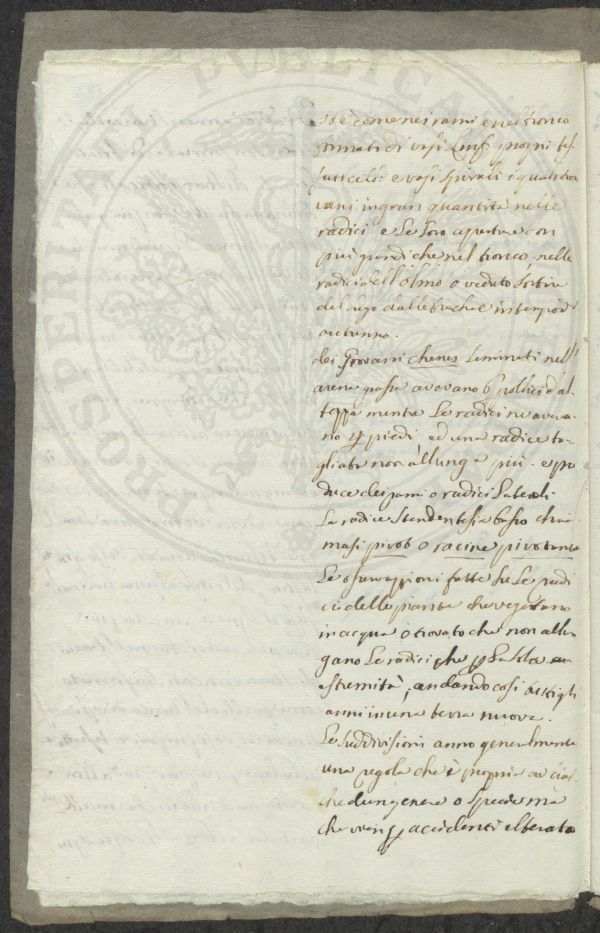 come nei rami e nel tronco
formati di vasi Linf: proprij tes:
suti cell: e vasi spirali i quali tro
vani in gran quantità nelle
radici e le loro aperture con
più grandi che nel tronco. nelle
radici dell'olmo o veduto sortire
del sugo dalle trachee in tempo d'
autunno.
dei Giovani chenes seminati nell'
arena grassa avevano 6 pollici d'al:
tezza mentre le radici ne aveva:
no 4 piedi ed una radice ta:
gliata non allunga più. e pro
duce dei rami o radici laterali.
La radice stendentesi a basso chia
masi pivot o racine pivotante
Le osservazioni fatte su le radi
ci delle piante che vegetano
in acqua ò trovato che non allun
gano le radici che p la sola
estremità, andando così tutti gli
anni in una terra nuova.
Le suddivisioni anno generalmente
una regola che è propria a cias
chedun genere o specie ma
che vien p accidenti alterata
PROSPERITATI PUBLICAE